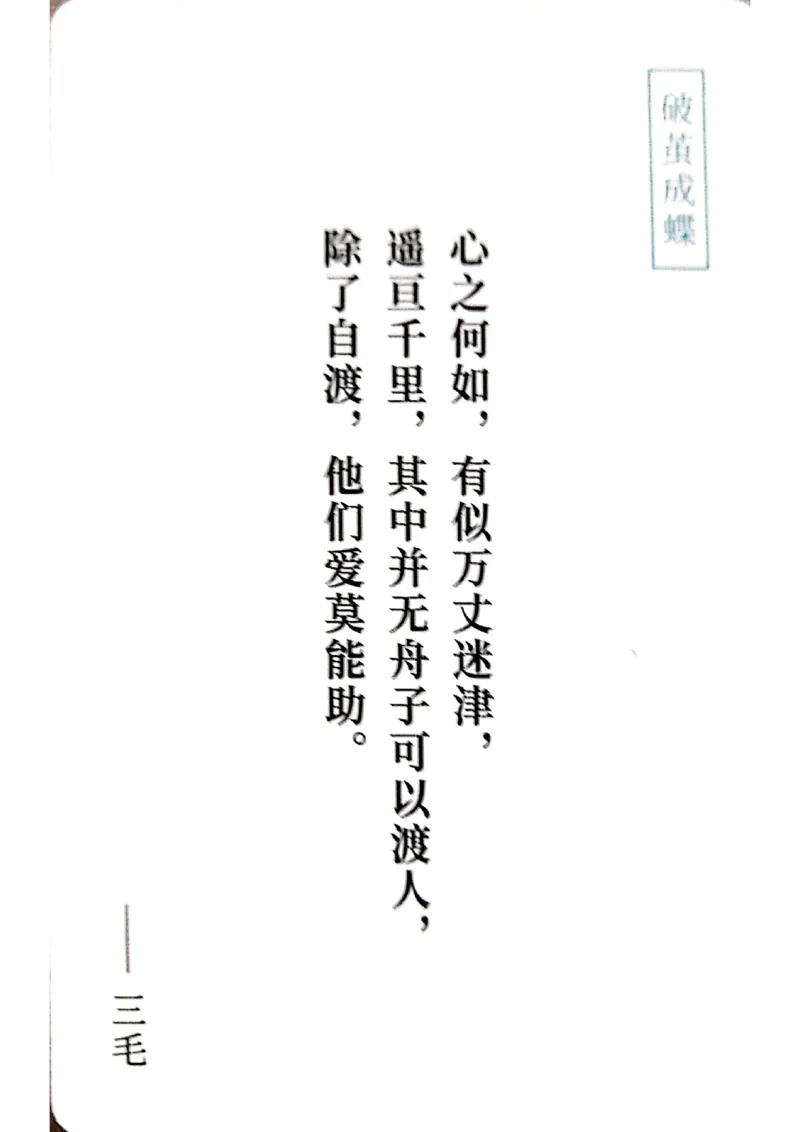 破茧成蝶
心之何如，有似万丈迷津，
遥亘千里，其中并无舟子可以渡人，
除了自渡，他们爱莫能助。
——三毛